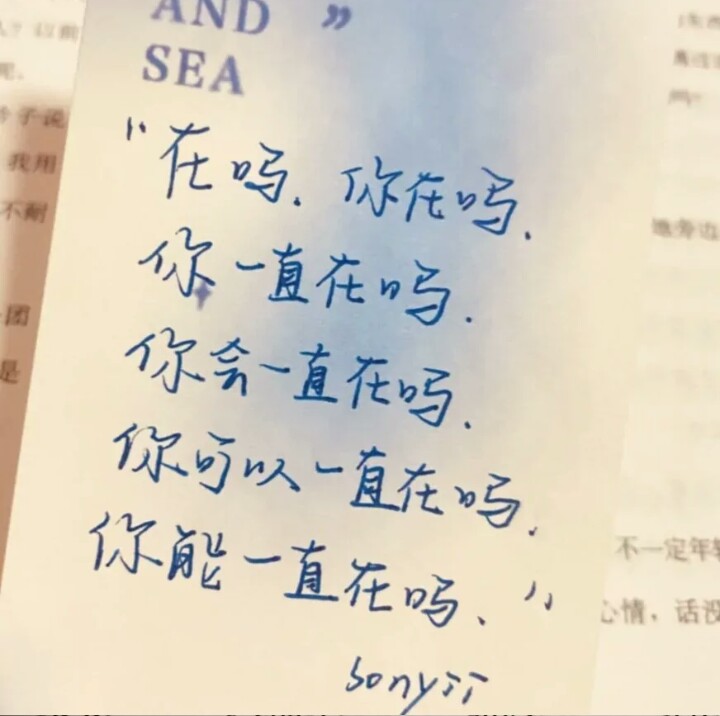 AND ”
SEA
“在吗．你在吗．
你一直在吗．
你会一直在吗．
你可以一直在吗．
你能一直在吗．”
sonyii
子说
我用
不耐
团
是
地旁边
不一定年轻
心情，话没